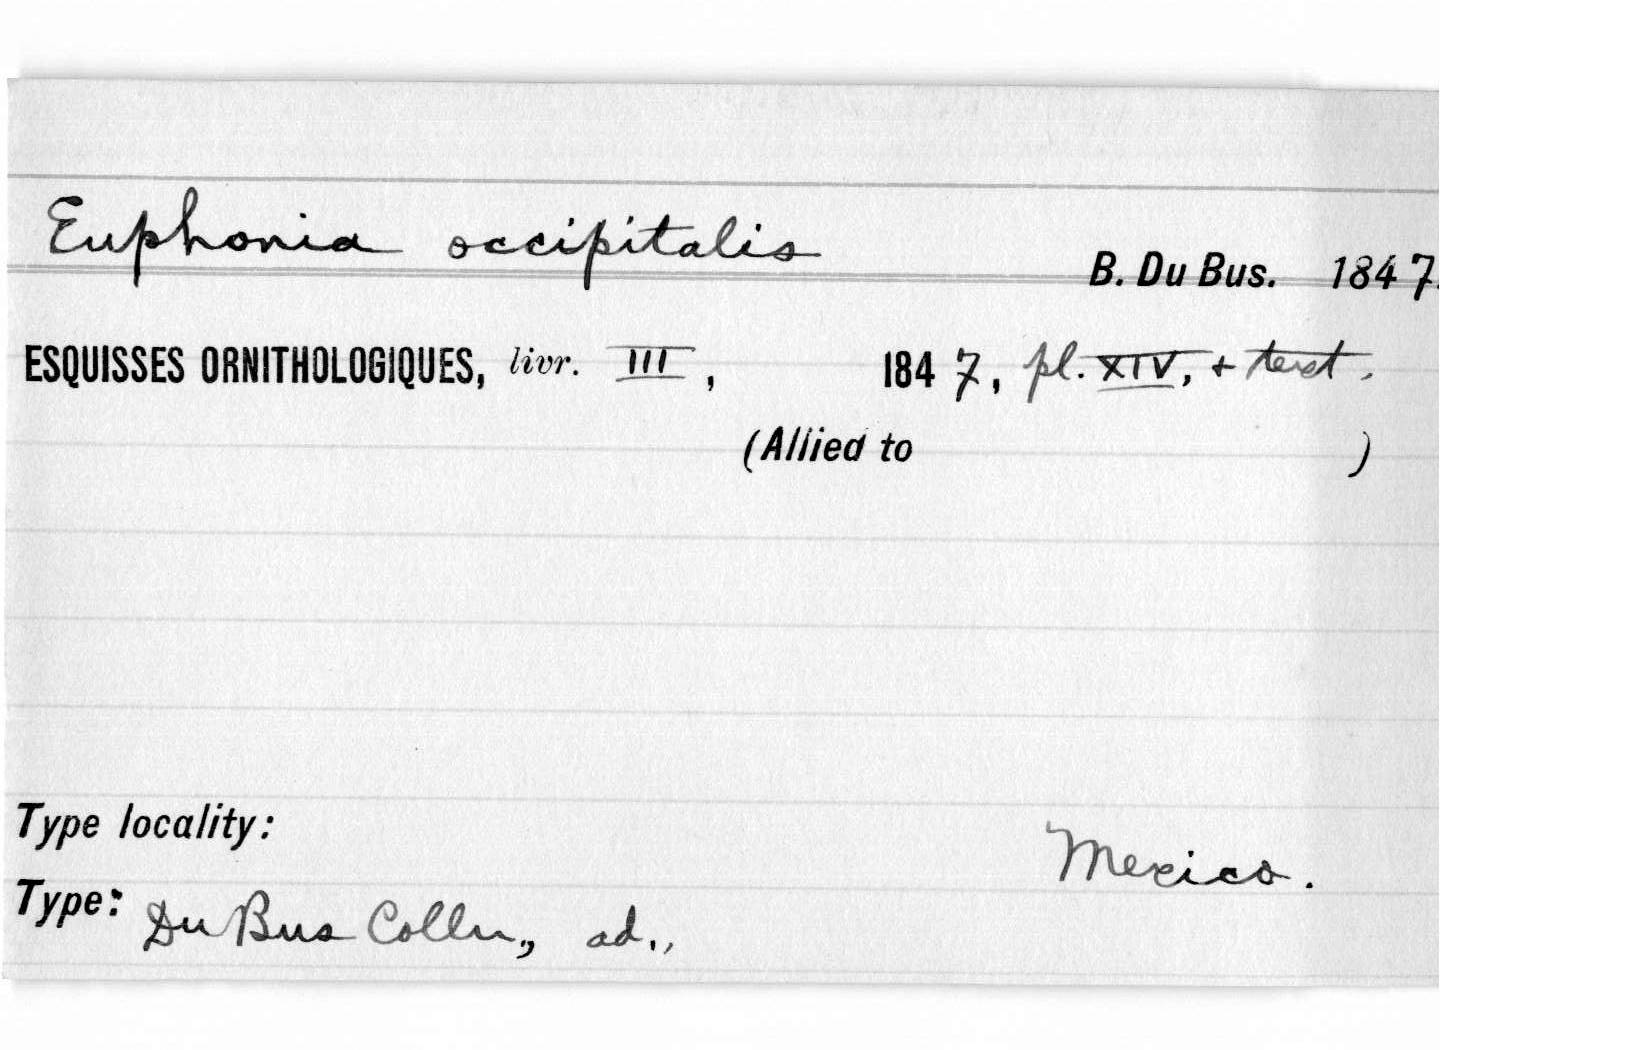 Euphonia occipitalis
B. Du Bus. 1847.
ESQUISSES ORNITHOLOGIQUES, livr. III, 1847, pl. XIV, + text.
(Allied to )
Type locality:
Mexico.
Type: Du Bus Colln., ad.,